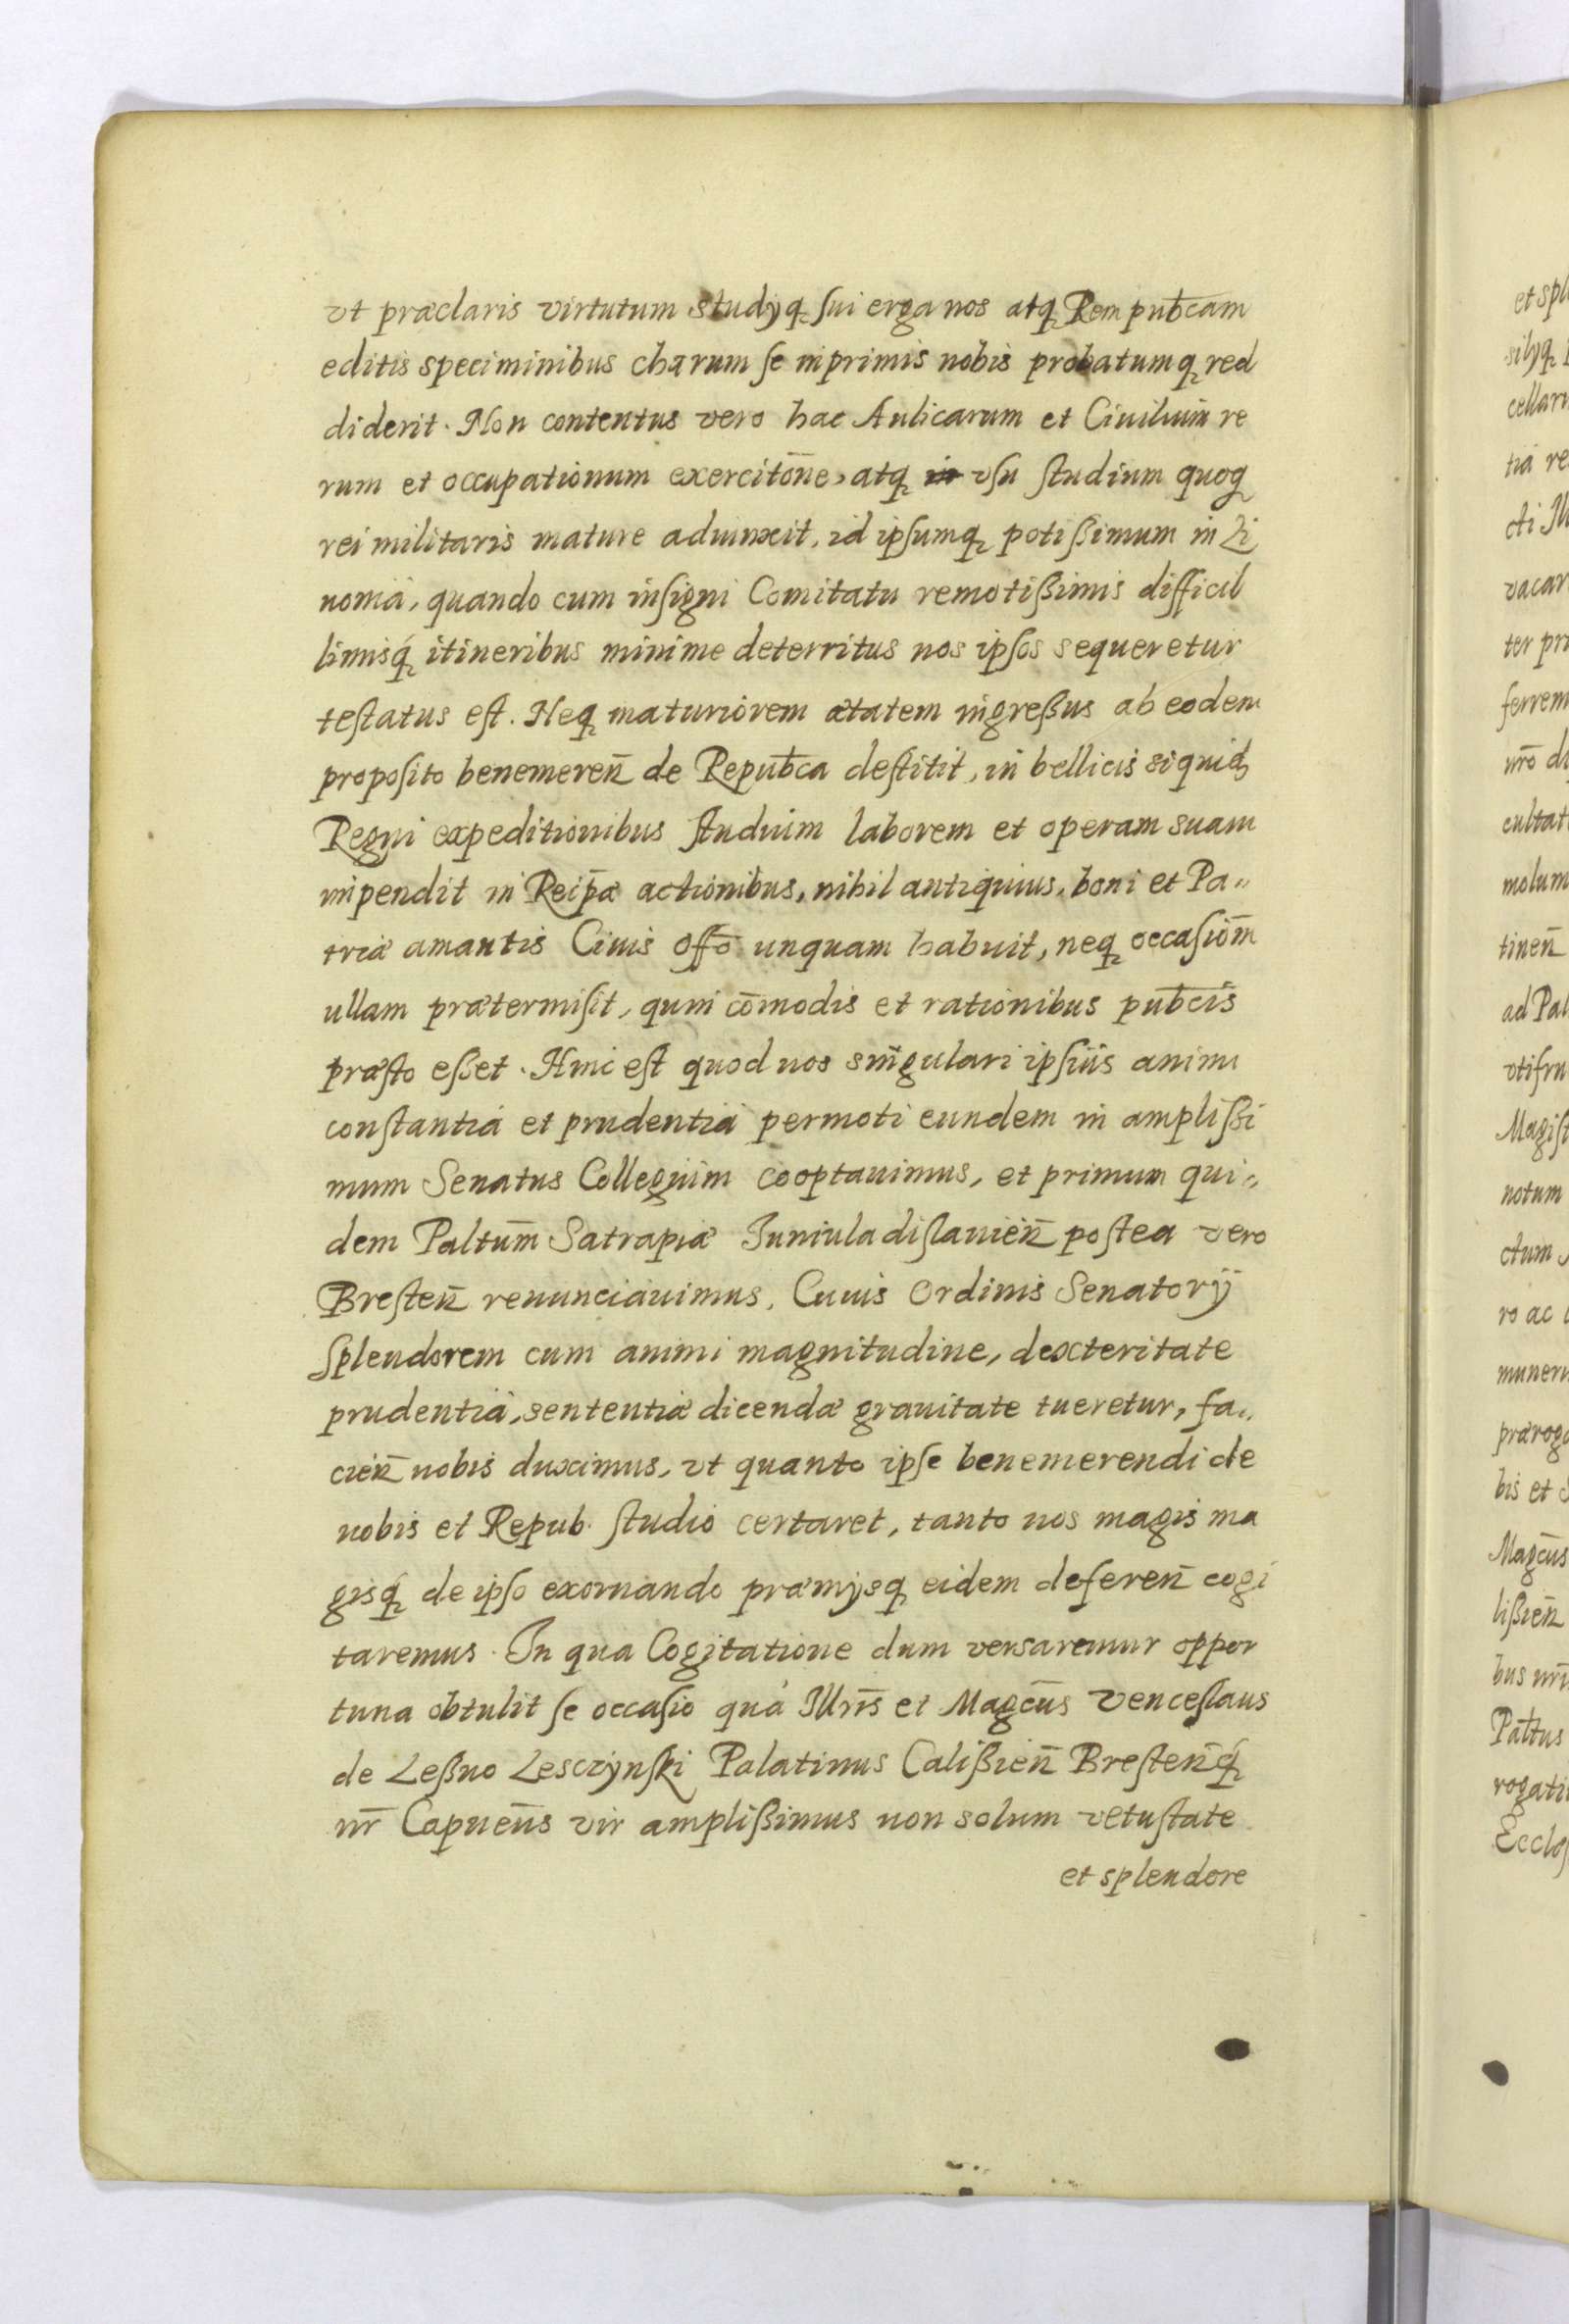 vt præclaris virtutum studyq₃ ſui erga nos atq₃ Rem pub̄cam
editis speciminibus charum ſe inprimis nobis probatumq₃ red
diderit. Non contentus vero hac Aulicarum et Ciuilium re
rum et occupationum exercitōne, atq₃ in vſu ſtudium quoq₃
rei militaris mature adiunxit, id ipſumq₃ potiſſimum in Li
uonia, quando cum inſigni Comitatu remotiſſimis difficil
limisq₃ itineribus minime deterritus nos ipſos sequeretur
teſtatus eſt. Neq₃ maturiorem ætatem ingreſſus ab eodem
propoſito benemereñ de Repub̄ca deſtitit, in bellicis siquid₃
Regni expeditionibus ſtudium laborem et operam suam
inpendit in Reip̄æ actionibus, nihil antiquius, boni et Pa„
triæ amantis Ciuis offō unquam habuit, neq₃ occaſiōm
ullam prætermiſit, quin cōmodis et rationibus pub̄cis
præſto eſſet. Hinc eſt quod nos singulari ipſius animi
conſtantia et prudentia permoti eundem in ampliſſi
mum Senatus Collegium cooptauimus, et primum qui„
dem Paltum̄ Satrapiæ Iuniuladiſlauieñ poſtea vero
Breſteñ renunciauimus. Cuius Ordinis Senatorÿ
Splendorem cum animi magnitudine, dexteritate
prudentia, sententiæ dicendæ grauitate tueretur, fa„
cieñ nobis duximus, vt quanto ipſe benemerendi de
nobis et Repub. ſtudio certaret, tanto nos magis ma
gisq₃ de ipſo exornando præmÿsq₃ eidem defereñ cogi
taremus. In qua Cogitatione dum versaremur oppor
tuna obtulit ſe occaſio quà Illrīs et Magc̄us Venceſlaus
de Leſſno Lesczÿnſki Palatinus Caliſſieñ Breſteñq₃
nr̄ Capnēus vir ampliſſimus non solum vetuſtate
et splendore
et spl
silyq₃
cellari
tia re
cti Ill
vacar
ter pri
ferrem
nrō di
cultat
molum
tineñ
ad Pal
vtifru
Magiſt
notum
ctum
ro ac
muneri
prærog
bis et
Magc̄us
liſſieñ
bus nrī
Pal̄tus
rogati
Eccleſ